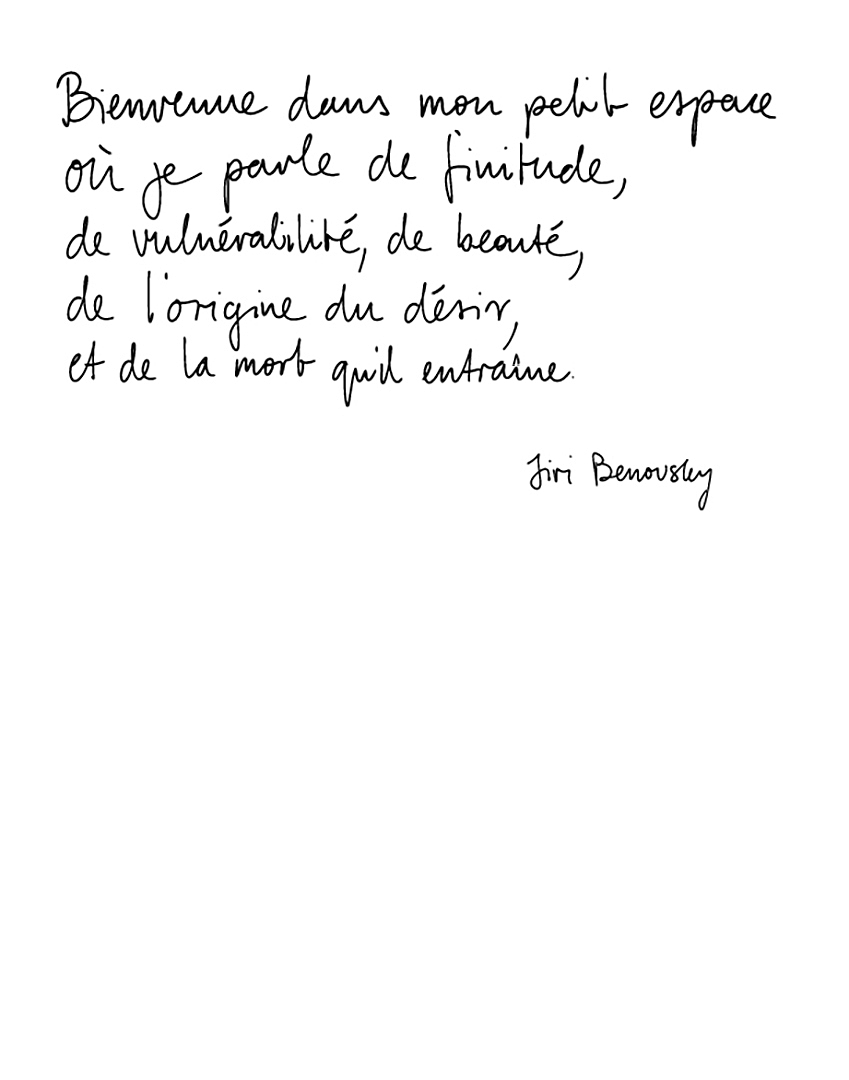 Bienvenue dans mon petit espace
où je parle de finitude,
de vulnérabilité, de beauté,
de l'origine du désir,
et de la mort qu'il entraîne.
Jiri Benovsky